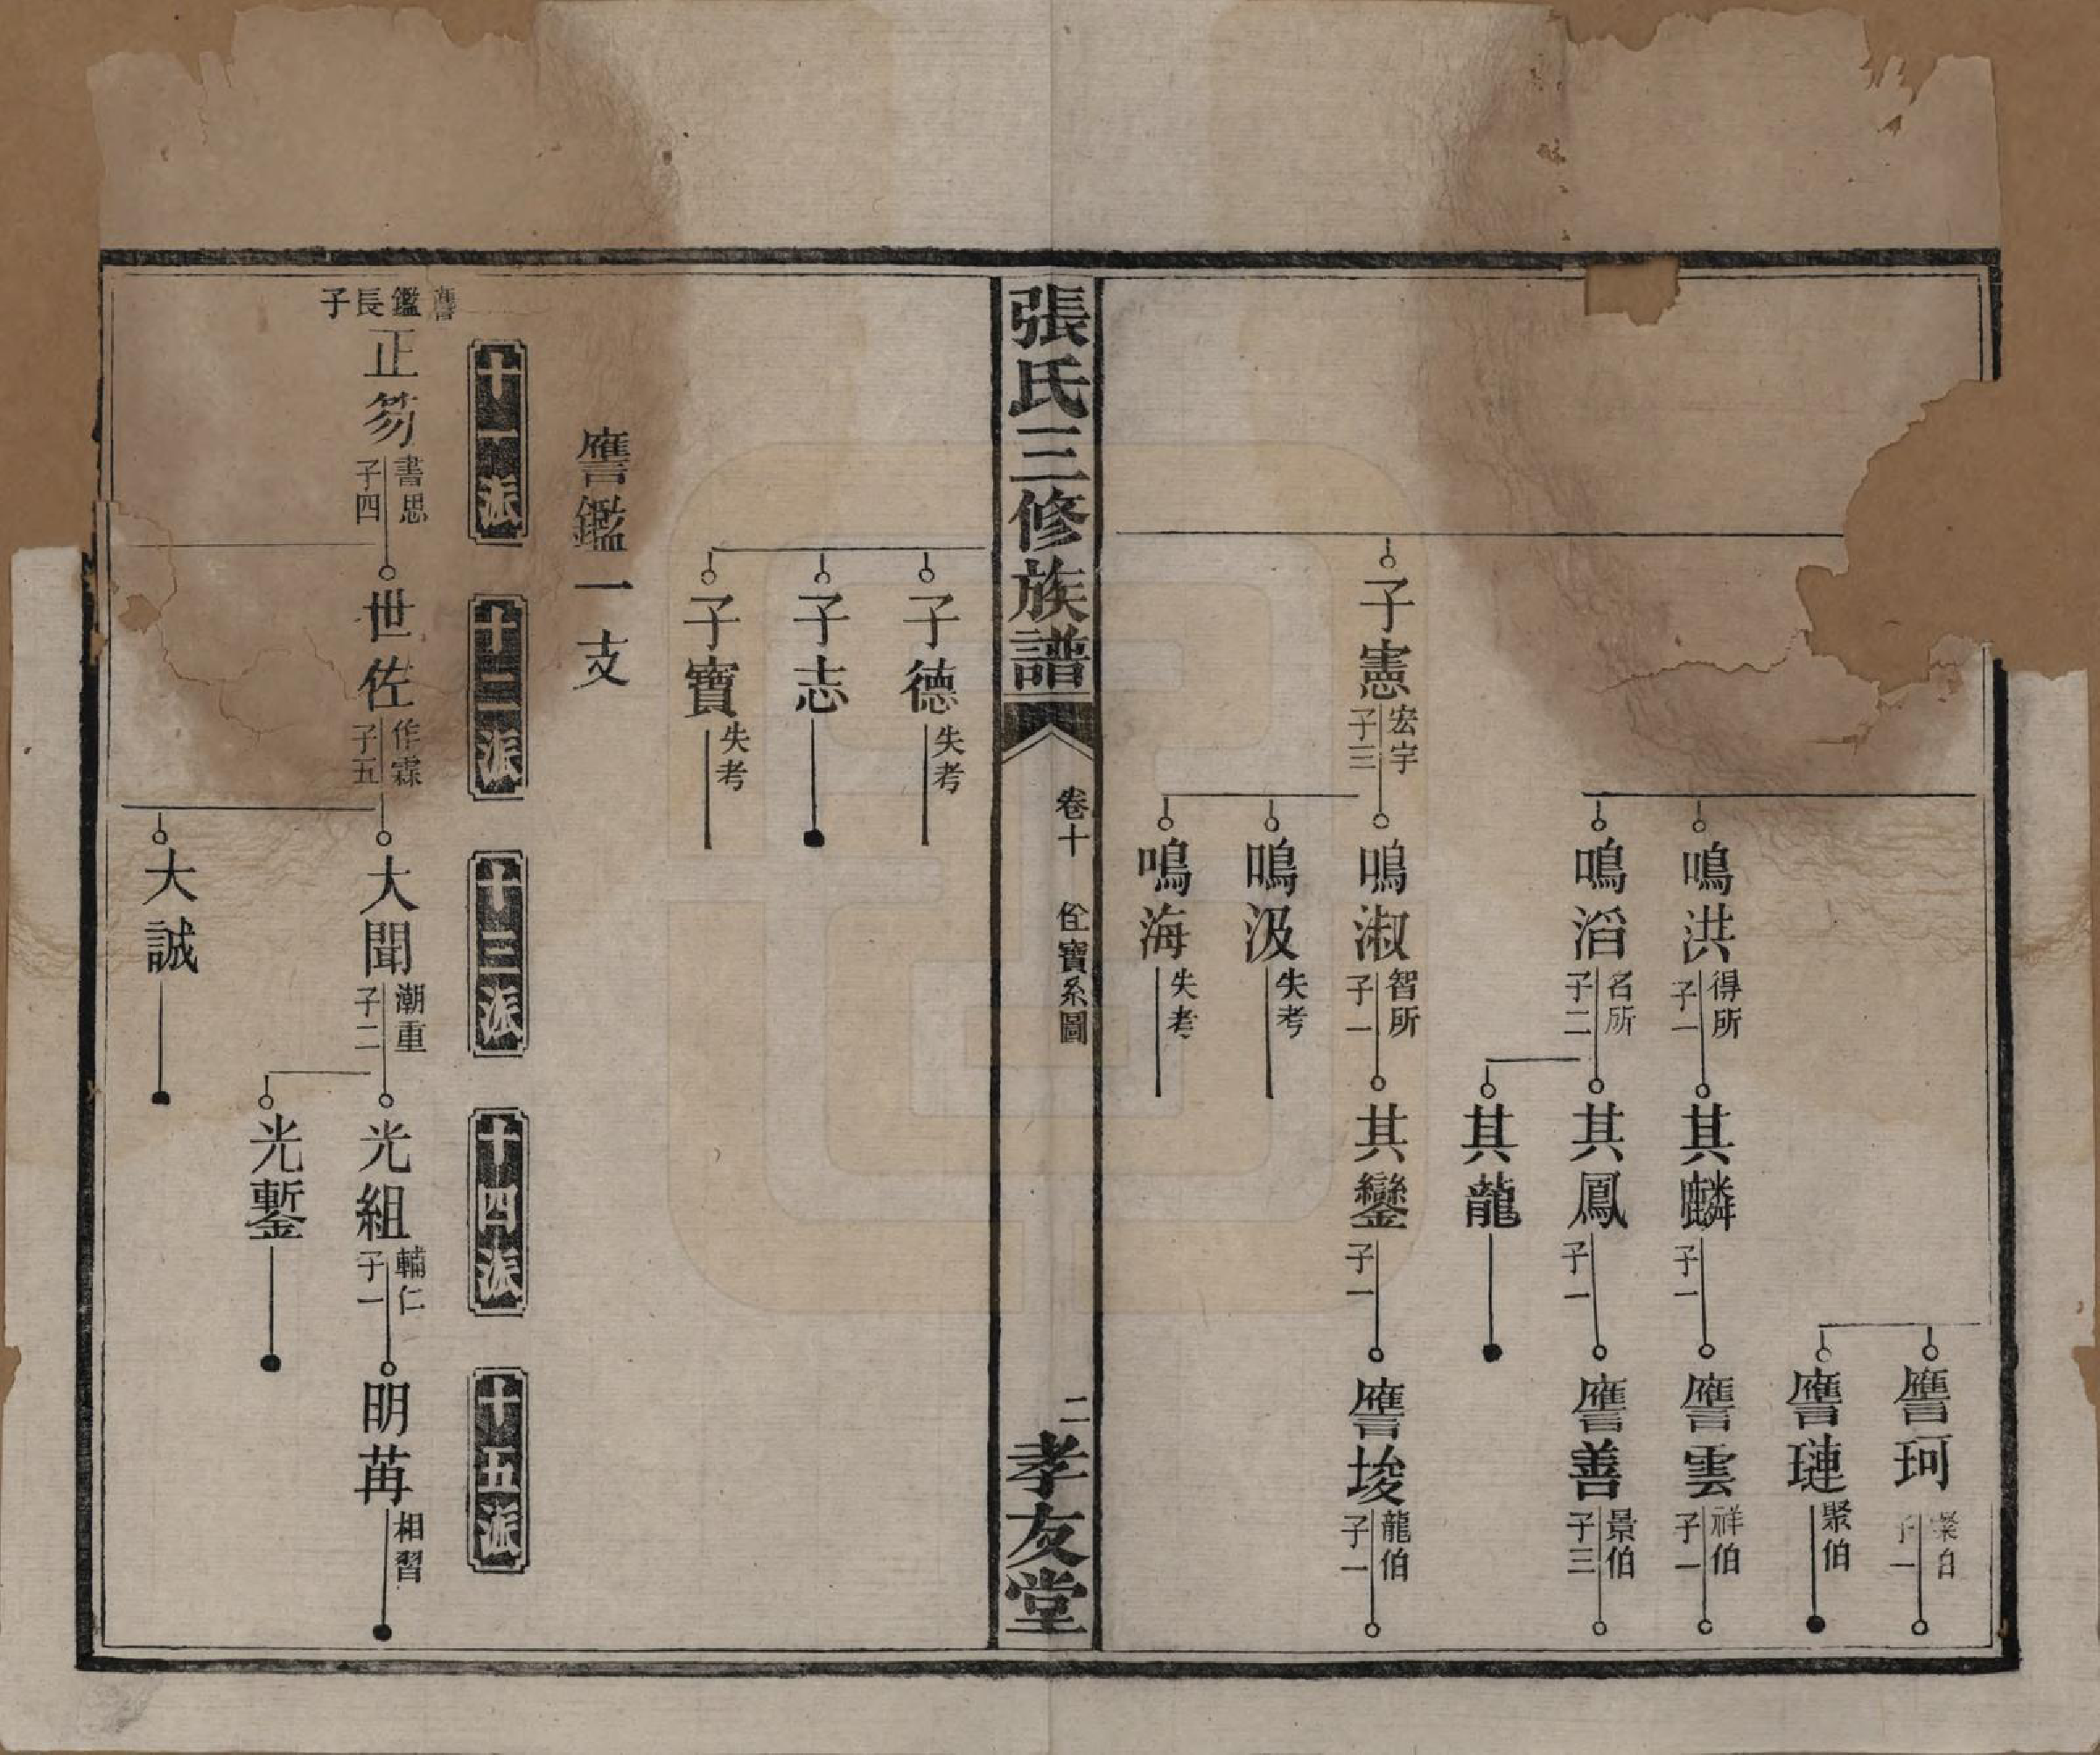 譍珂
子一
譍璉 聚伯
鳴洪 得所 子一
其麟 子一
譍雲 祥伯 子一
鳴滔 名所 子二
其鳳 子一
譍善 景伯 子三
其龍
子憲 宏宇 子三
鳴淑 智所 子一
其鑾 子一
譍埈 龍伯 子一
鳴汲 失考
鳴海 失考
張氏三修族譜 卷十 佺寶系圖 二 孝友堂
子德 失考
子志
子寶 失考
譍鑑一支
十一派 十二派 十三派 十四派 十五派
譍鑑長子
正笏 書思 子四
世佐 作霖 子五
大聞 潮重 子二
光組 輔仁 子一
明苒 相習
光鏨
大誠